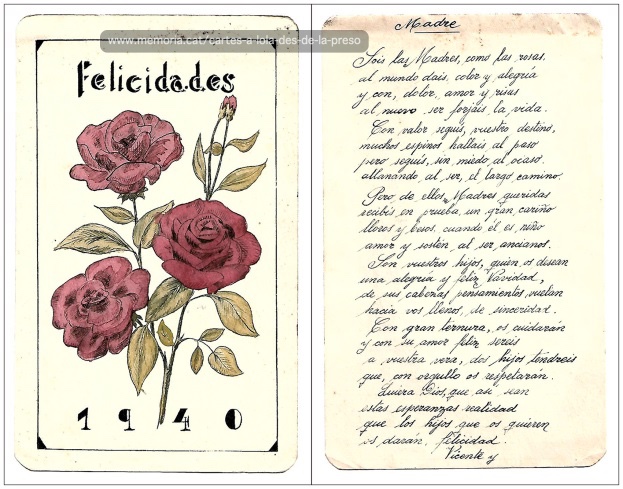 www.memoria.cat/cartes-a-lola-des-de-la-preso
Felicidades
1940
Madre
Sois las Madres, como las rosas,
al mundo dais, color y alegría
y con, dolor, amor y risas
al nuevo ser forjais, la vida.
Con valor seguis, vuestro destino,
muchos, espinos hallais al paso
pero seguis, sin miedo, al ocaso,
allanando, al ser, el largo camino.
Pero de ellos, Madres, queridas
recibis en prueba, un gran, cariño
llores y besos, cuando él es, niño
amor y sostén al ser, ancianos.
Son vuestros hijos, quien os desean
una alegria y feliz Navidad,
de sus cabezas pensamientos, vuelan
hacia vos llenos, de sinceridad.
Con gran ternura, os cuidarán
y con su amor feliz sereis
a vuestra vera, dos hijos tendreis
que, con orgullo os respetarán.
Quiera Dios, que asi sean
estas esperanzas realidad
que los hijos, que os quieren
os darán, felicidad.
Vicente y